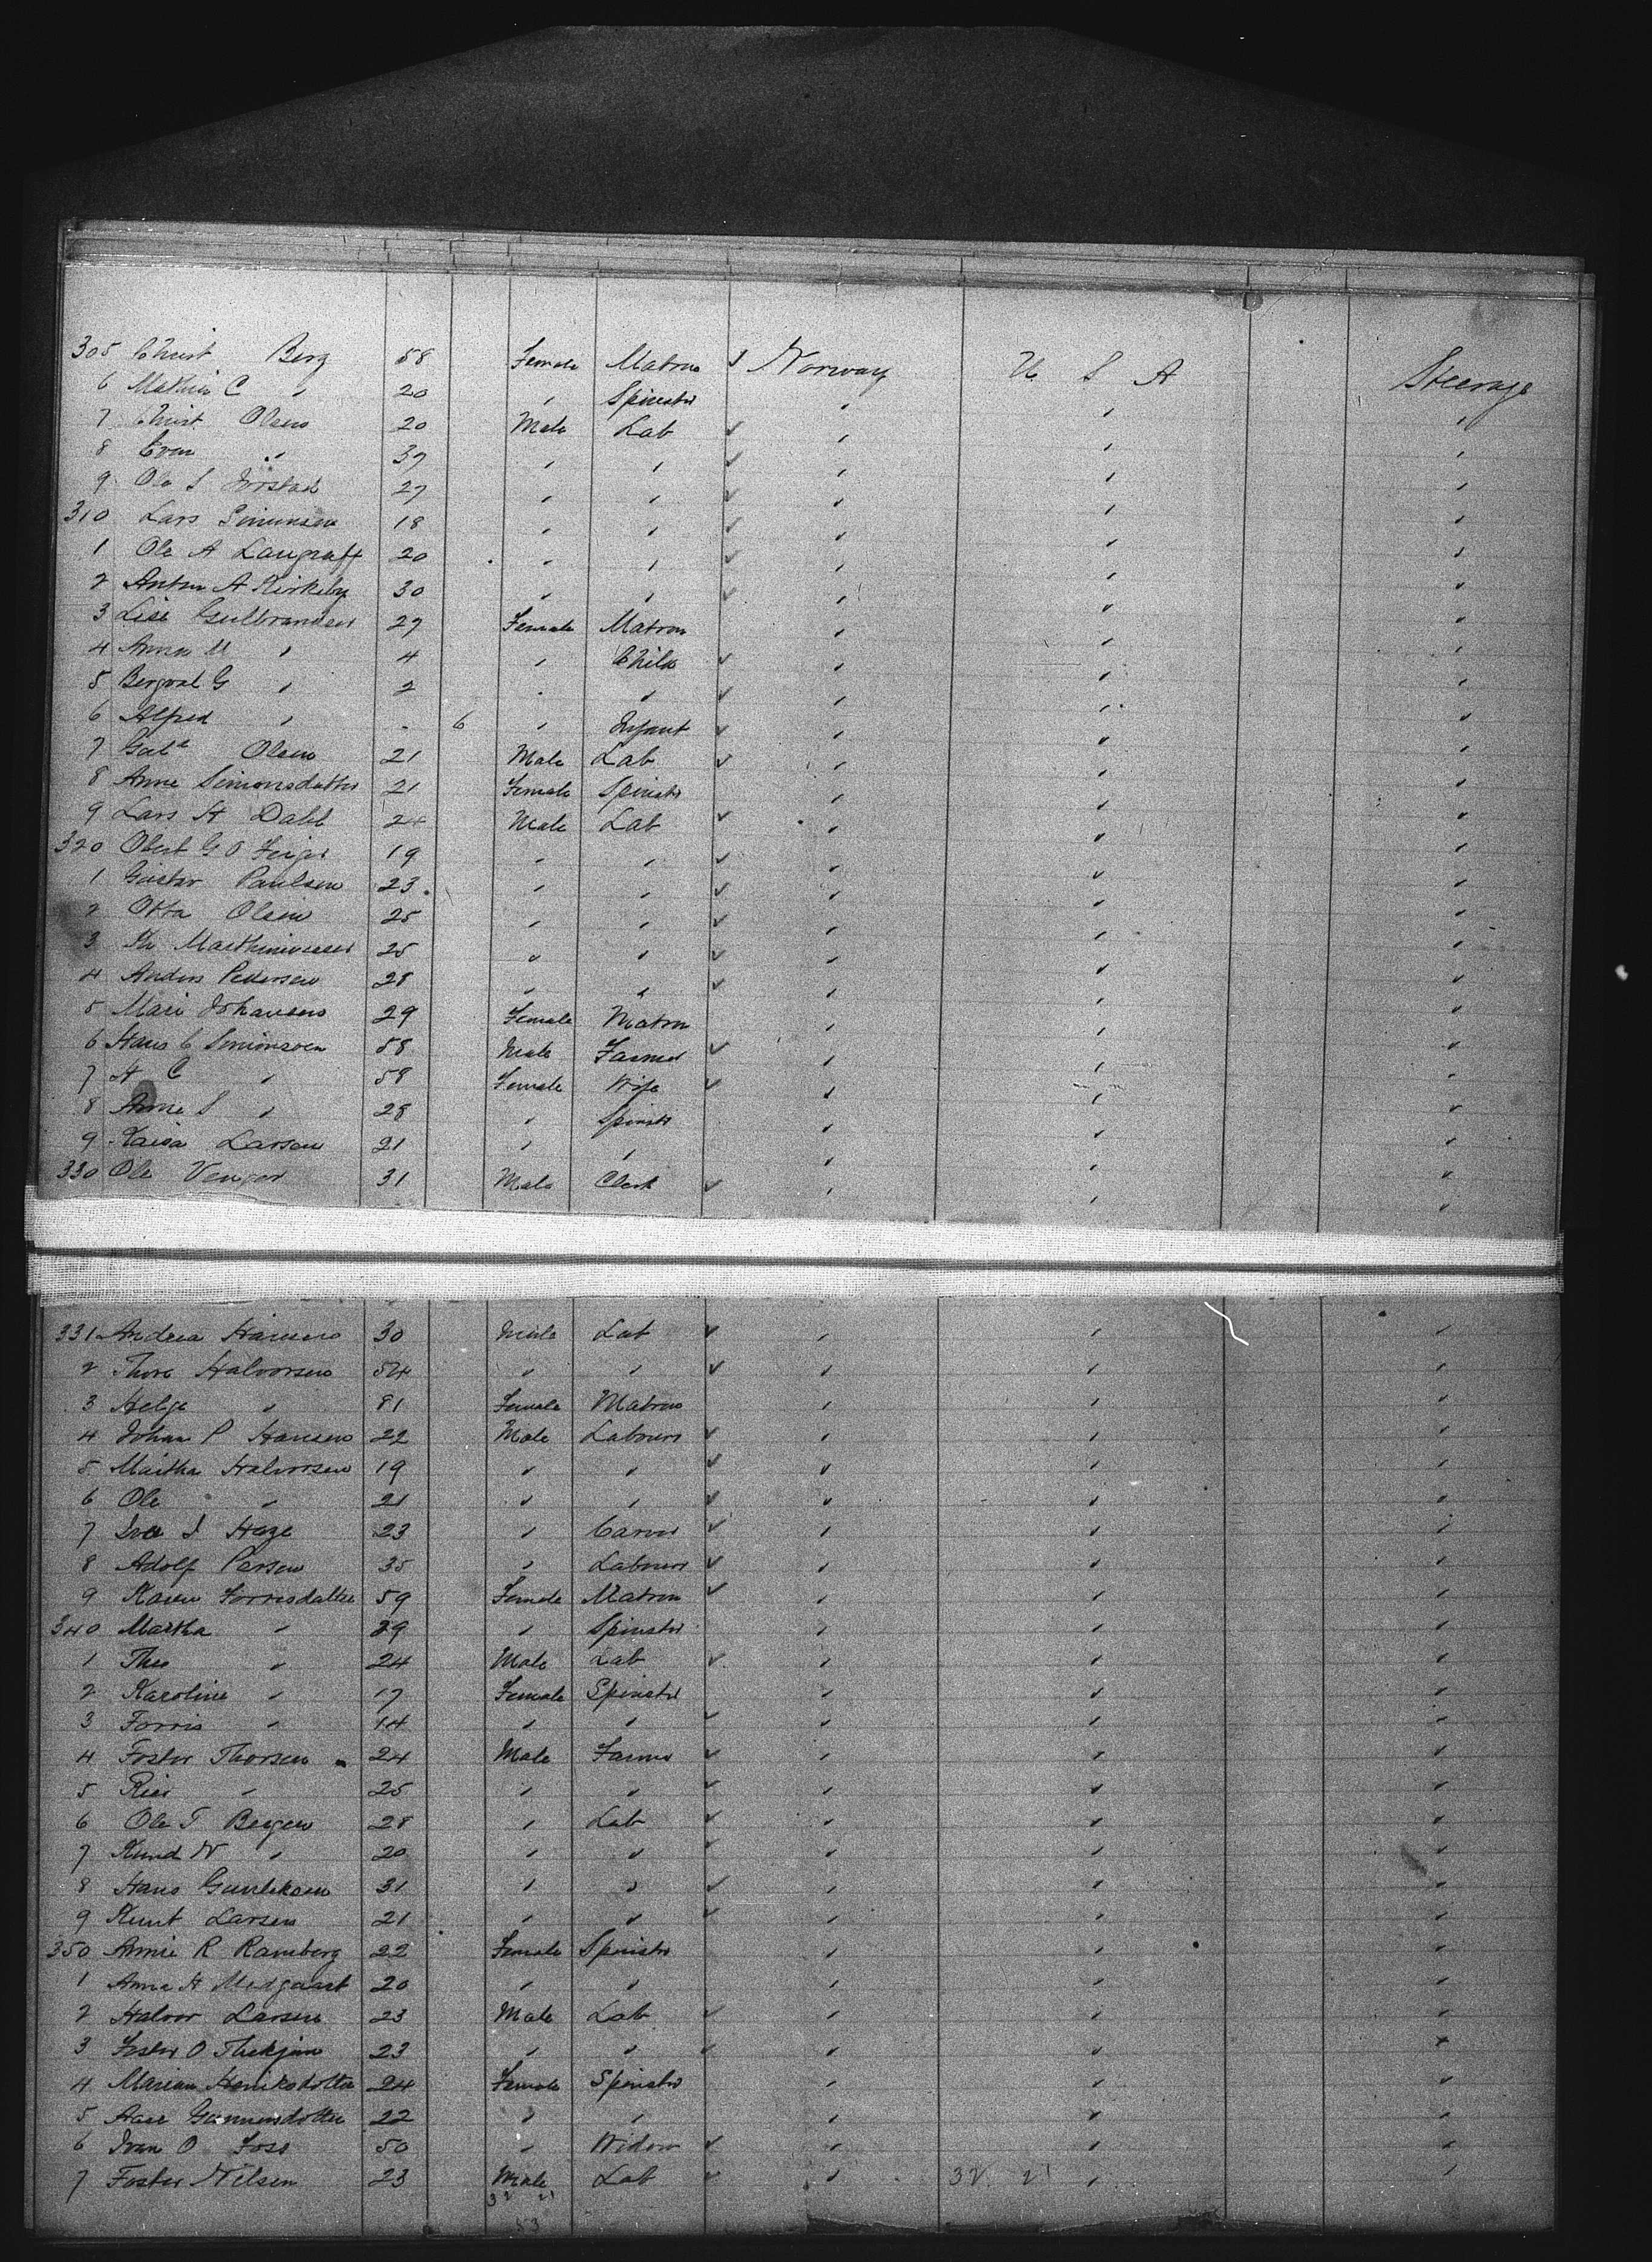 305 Christ Berg 58 Female Matron ✓ Norway U S A Steerage
6 Mathia C " 20 " Spinster " " "
7 Christ Olsen 20 Male Lab ✓ " " "
8 Even " 37 " " ✓ " " "
9 Ole S 27 " " ✓ " " "
310 Lars Simensen 18 " " ✓ " " "
1 Ole A Langraff 20 " " ✓ " " "
2 Anton A Kirkeby 30 " " ✓ " " "
3 Lise Gulbrandsen 27 Female Matron " " "
4 Anna M " 4 " Child ✓ " " "
5 Bergval G " 2 " " ✓ " " "
6 Alfred " - 6 " Infant ✓ " " "
7 Gabl Olsen 21 Male Lab ✓ " " "
8 Anne Simonsdatter 21 Female Spinster " " "
9 Lars H Dahl 24 Male Lab ✓ " " "
320 Obert G O 19 " " ✓ " " "
1 Gustav Paulsen 23 " " ✓ " " "
2 Otta Olsen 25 " " ✓ " " "
3 Kr Marthiniussen 25 " " ✓ " " "
4 Anders Pedersen 28 " " ✓ " " "
5 Mari Johansen 29 Female Matron " " "
6 Hans C Simonsen 58 Male Farmer ✓ " " "
7 A C " 58 Female Wife ✓ " " "
8 Anne S " 28 " Spinster " " "
9 Kaisa Larsen 21 " " " " "
330 Ole Venger 31 Male Clerk ✓ " " "
331 Andrea Hansen 30 Male Lab ✓ " " "
2 Thore Halvorsen 54 " " ✓ " " "
3 Helge " 81 Female Matron " " "
4 Johan P Hansen 22 Male Labourer ✓ " " "
5 Martha Halvorsen 19 " " ✓ " " "
6 Ole " 21 " " ✓ " " "
7 Iver I Hage 23 " Carver ✓ " " "
8 Adolf Larsen 35 " Labourer ✓ " " "
9 Karen Torrisdatter 59 Female Matron ✓ " " "
340 Martha " 29 " Spinster " " "
1 Theo " 24 Male Lab ✓ " " "
2 Karoline " 17 Female Spinster " " "
3 Torris " 14 " " ✓ " " "
4 Foster Thorsen 24 Male Farmer ✓ " " "
5 " 25 " " ✓ " " "
6 Ole T Bergen 28 " Lab ✓ " " "
7 Knud N " 20 " " ✓ " " "
8 Hans Gunleksen 31 " " ✓ " " "
9 Knut Larsen 21 " " ✓ " " "
350 Annie R Ramberg 22 Female Spinster " " "
1 Anna H Medgaart 20 " " " " "
2 Halvor Larsen 23 Male Lab ✓ " " "
3 O 23 " " ✓ " " "
4 Marian Henriksdotter 24 Female Spinster " " "
5 Aase Gunnersdotter 22 " " " " "
6 Ivan O Foss 50 " Widow ✓ " " "
7 Foster Nelsen 23 Male Lab ✓ " 32 21 " "
32 21
53